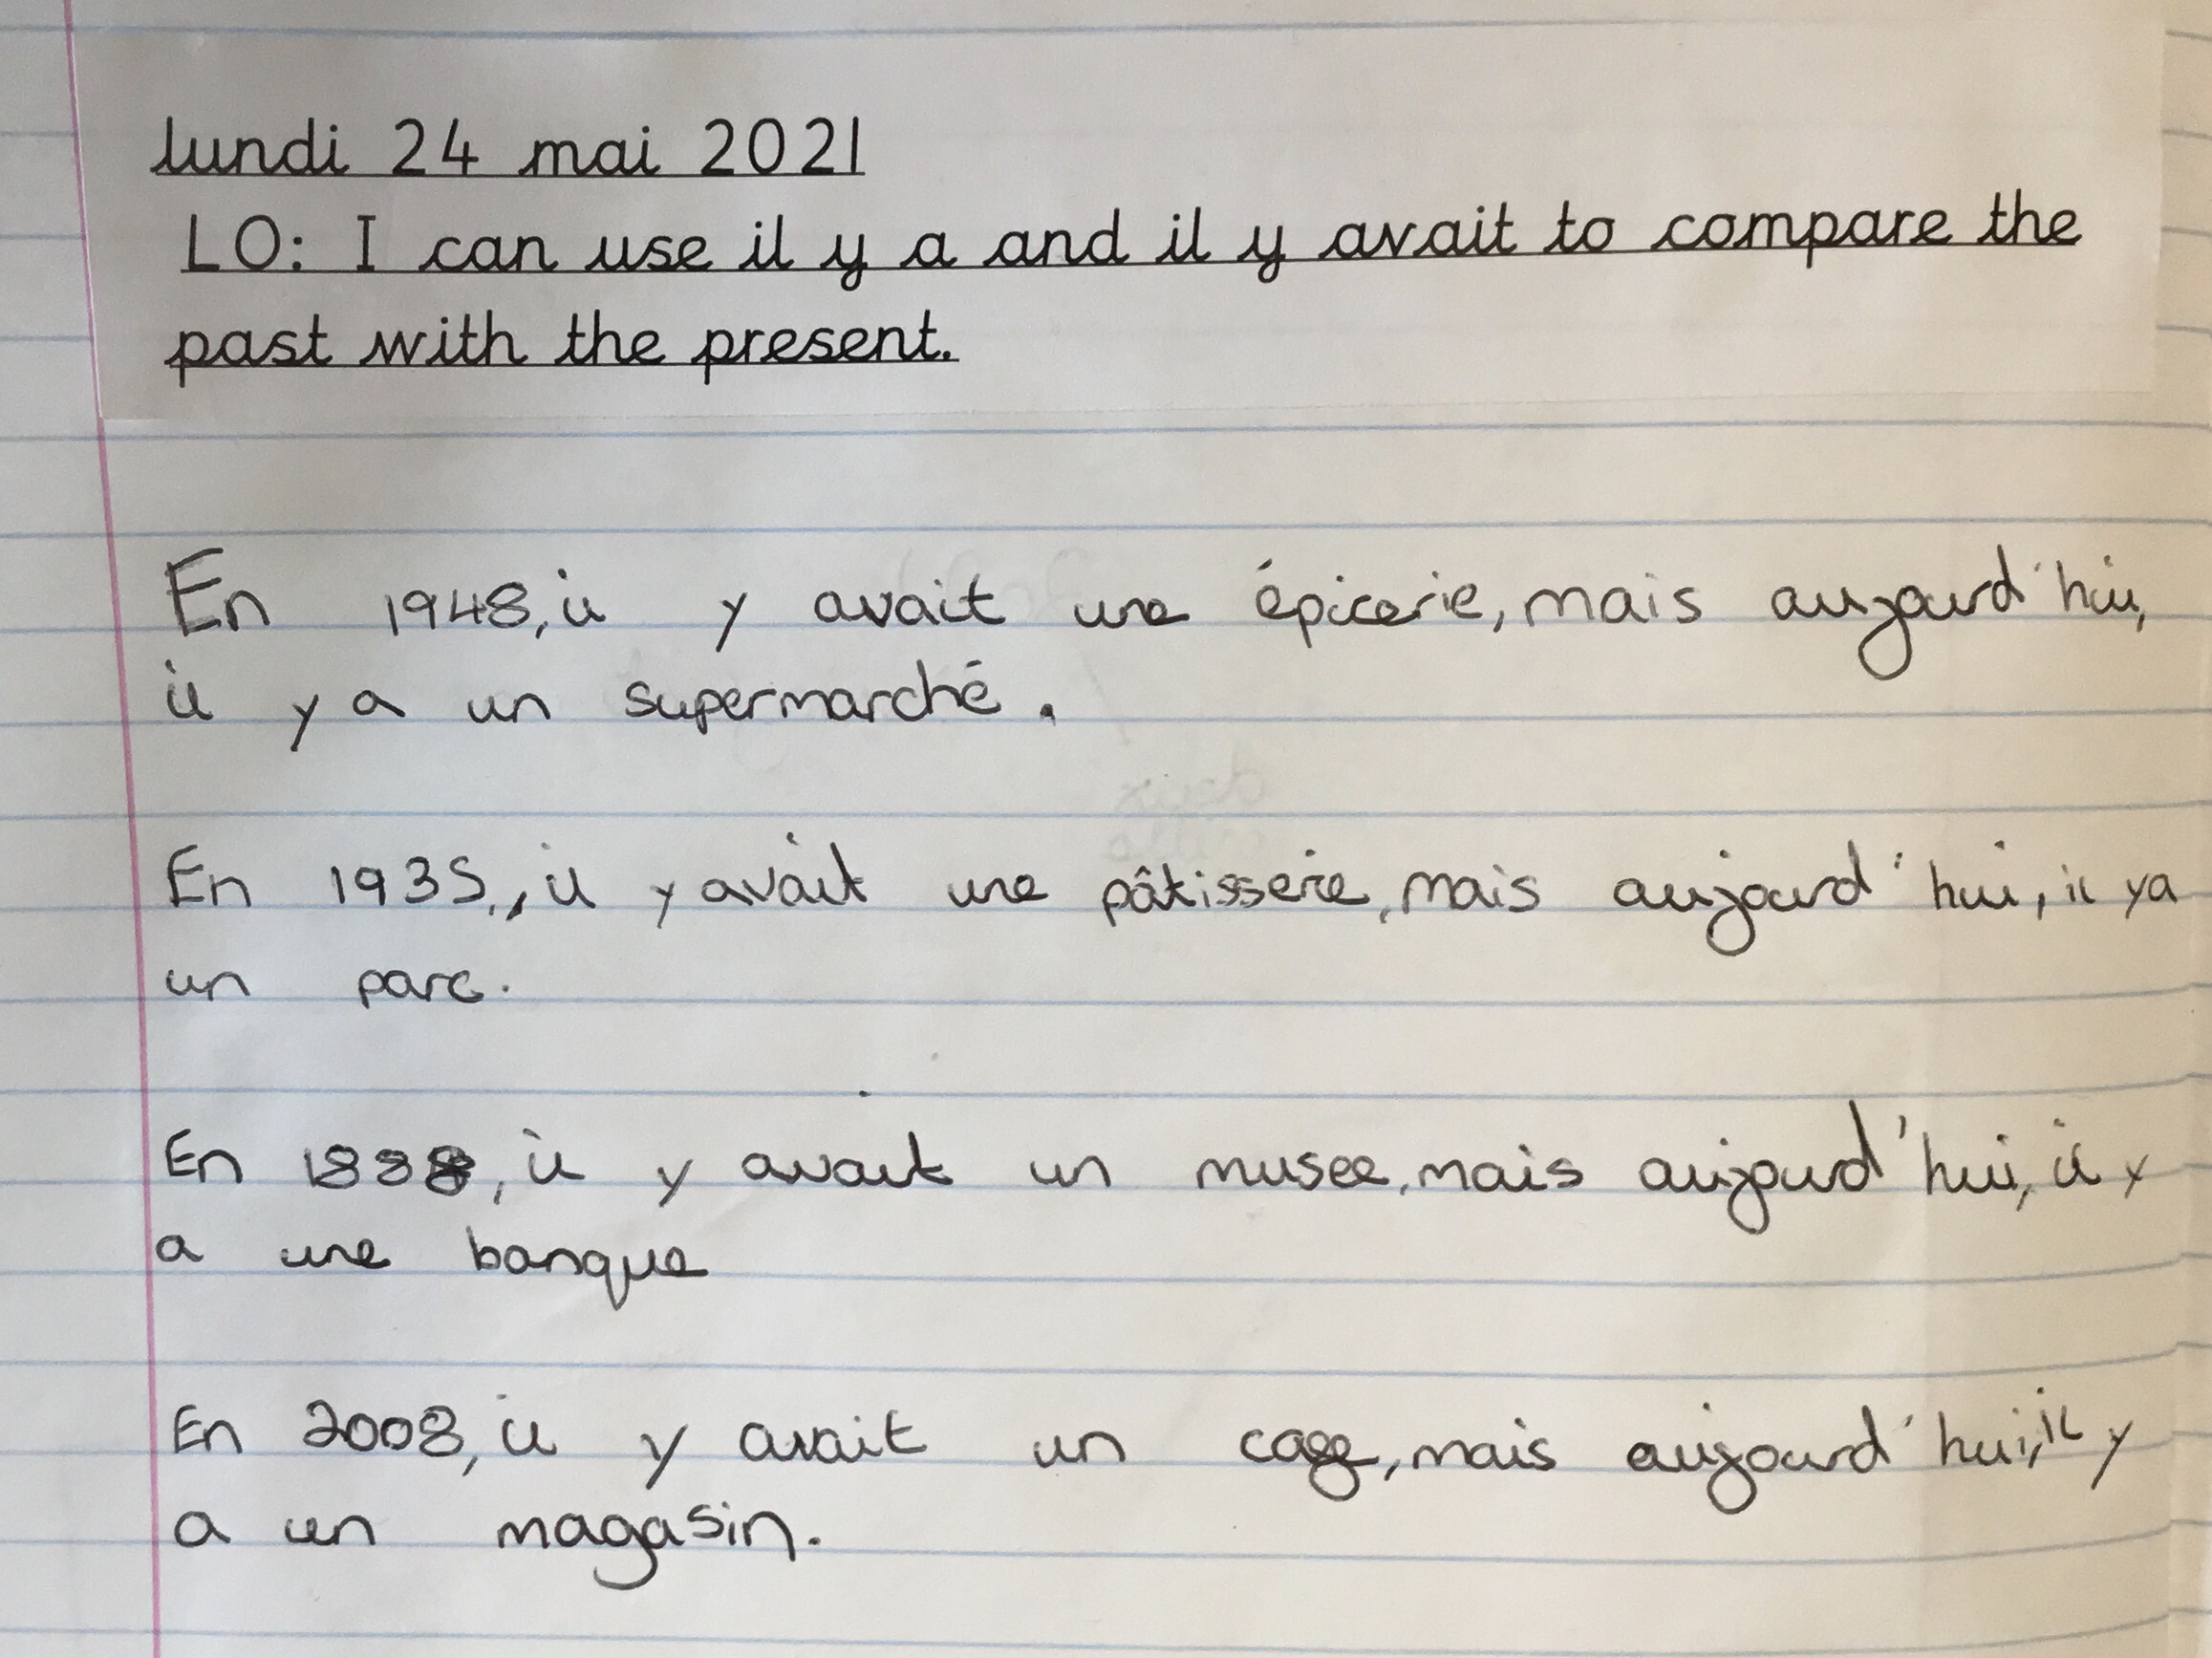 lundi 24 mai 2021
LO: I can use il y a and il y avait to compare the
past with the present.
En 1948, il y avait une épicerie, mais aujourd'hui,
il y a un supermarché.
En 1935, il y avait une pâtisserie, mais aujourd'hui, il y a
un parc.
En 1888, il y avait un musee, mais aujourd'hui, il y
a une banque
En 2008, il y avait un mais aujourd'hui, il y
a un magasin.